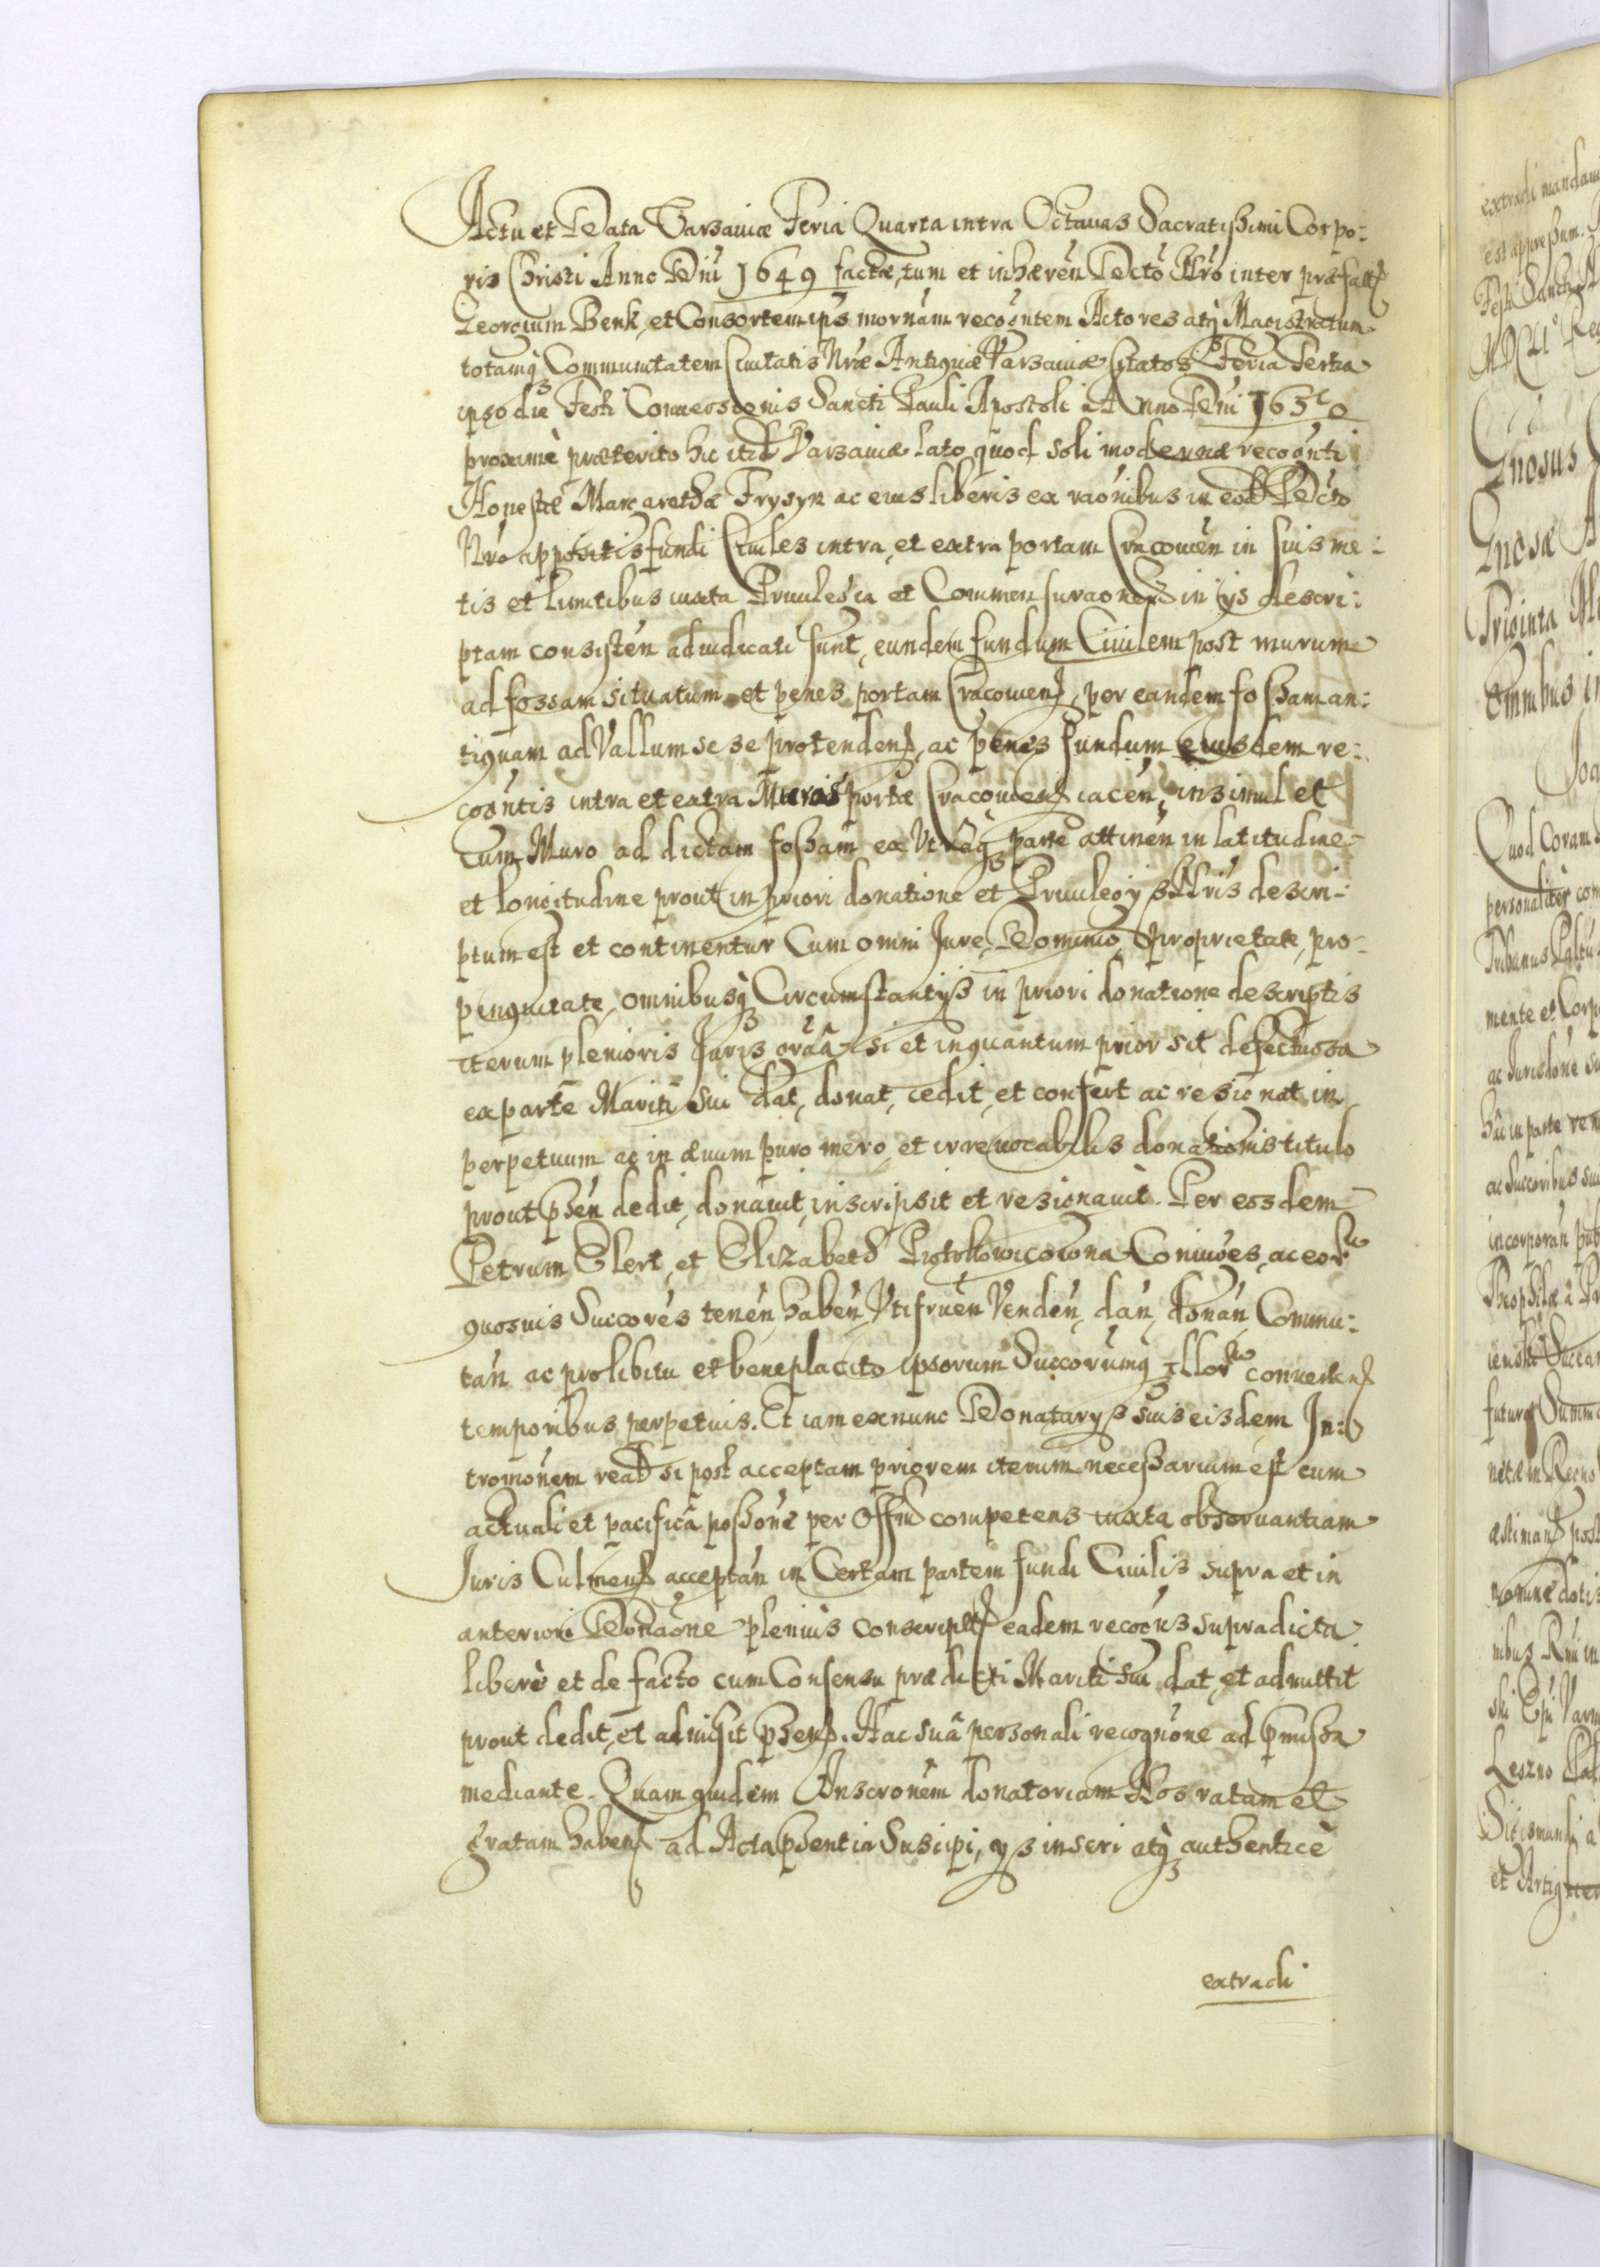 Actu et Data Varsaviæ Feria Quarta intra Octauas Sacratissimi Corpo:
ris Christi Anno Dni 1649 factæ, tum et inhæren Decto Nro inter præfatt
Georgium Benk, et Consortem ips modernam recogntem Actores atq Magistratum
totamq Communitatem Ciuitatis Nræ Antiquæ Varsauiæ Citatos Feria Tertia
ipso die Festi Conuersionis Sancti Pauli Apostoli Anno Dni 1650
proxime præterito hic itid Varsauiæ lato, quod soli modernæ recognti
Honestæ Margarethæ Frysyn ac eius liberis ex raonibus in eod Decto
Nro appositis fundi Ciuiles intra et extra portam Cracouien in suis me:
tis et limitibus iuxta Priuilegia et Commensuraonem in ijs descri:
ptam consisten adiudicati sunt, eundem fundum Ciuilem post murum
ad fossam situatum et penes portam Cracouiens, per eandem fossam an:
tiquam ad Vallum sese protendens, ac penes fundum eiusdem re:
cogntis intra et extra Muros portæ Cracouiens iacen, insimul et
cum Muro ad dictam fossam ex Vtraq parte attinen in latitudine
et longitudine prout in priori donatione et Priuilegijs Nris descri:
ptum est et continentur Cum omni Jure, Dominio, proprietate, pro:
pinquitate, omnibusq Circumstantijs in priori donatione descriptis
iterum plenioris Juris gratia si et inquantum prior sit defectuosa
ex parte Mariti sui dat, donat, cedit, et confert ac resignat in
perpetuum ac in æuum puro mero, et irreuocabilis donationis titulo
prout psen dedit, donauit, inscripsit et resignauit. Per eosdem
Petrum Elert, et Elizabeth Piotrkowicowna Coniuges, ac eor
quosuis Succores tenen, haben, Vtifruen Venden, dan, donan, Commu:
tan ac pro libitu et beneplacito ipsorum Succorumq illor conuerten
temporibus perpetuis. Et iam exnunc Donatarijs suis eisdem In:
tromonem reale si post acceptam priorem iterum necessarium est cum
actuali et pacifica possone per Offm competens iuxta obseruantiam
Juris Culmens acceptan in Certam partem fundi Ciuilis supra et in
anteriori Donaone plenius conscriptt eadem recogns supradicta
libere et de facto cum Consensu prædicti Mariti sui dat, et admittit
prout dedit, et admisit psens. Hac sua personali recognone ad pmissa
mediante. Quam quidem Inscronem donatoriam Nos ratam et
gratam habens ad Acta psentia Suscipi, ijs inscri atq authentice
extradi